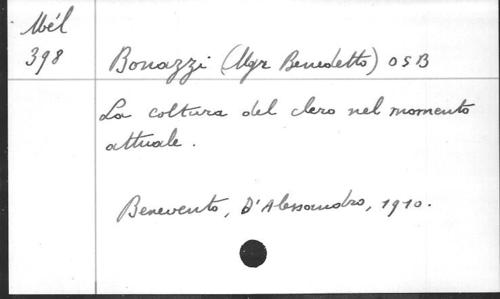 Mél
398
Bonazzi (Mgr Benedetto) OSB
La coltura del clero nel momento
attuale.
Benevento, D'Alessandro, 1910.